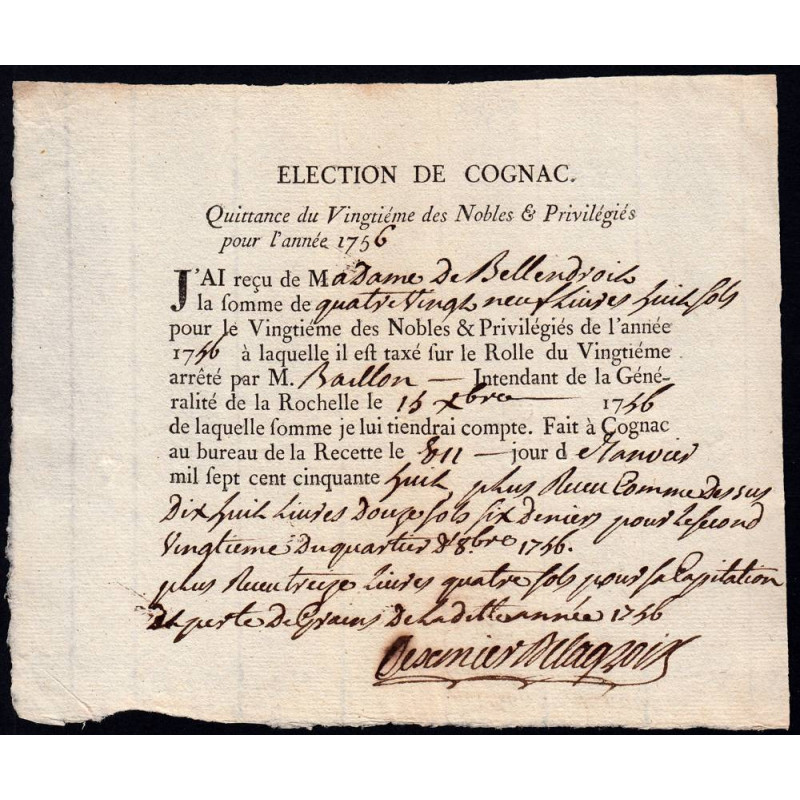 ELECTION DE COGNAC.
Quittance du Vingtiéme des Nobles & Privilégiés
pour l'année 1756
J'AI reçu de Madame de Bellendroit
la somme de quatre Vingt neuf Livres huit sols
pour le Vingtiéme des Nobles & Privilégiés de l'année
1756 à laquelle il est taxé sur le Rolle du Vingtiéme
arrêté par M. Baillon — Intendant de la Géné-
ralité de la Rochelle le 15 xbre 1756
de laquelle somme je lui tiendrai compte. Fait à Cognac
au bureau de la Recette le — jour d Janvier
mil sept cent cinquante huit plus Receu Comme dessus
Dix huit Livres Douze sols six deniers pour le second
Vingtieme du quartier d'8bre 1756.
plus Receu treize Livres quatre sols pour sa Capitation
et perte de Grains de Laditte année 1756